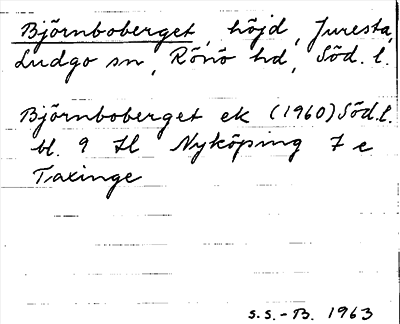 Björnboberget, höjd, Juresta,
Ludgo sn, Rönö hd, Söd. l.
Björnboberget ek (1960) Söd.l.
bl. 9 H Nyköping 7 e
Taxinge
S.S.-B. 1963